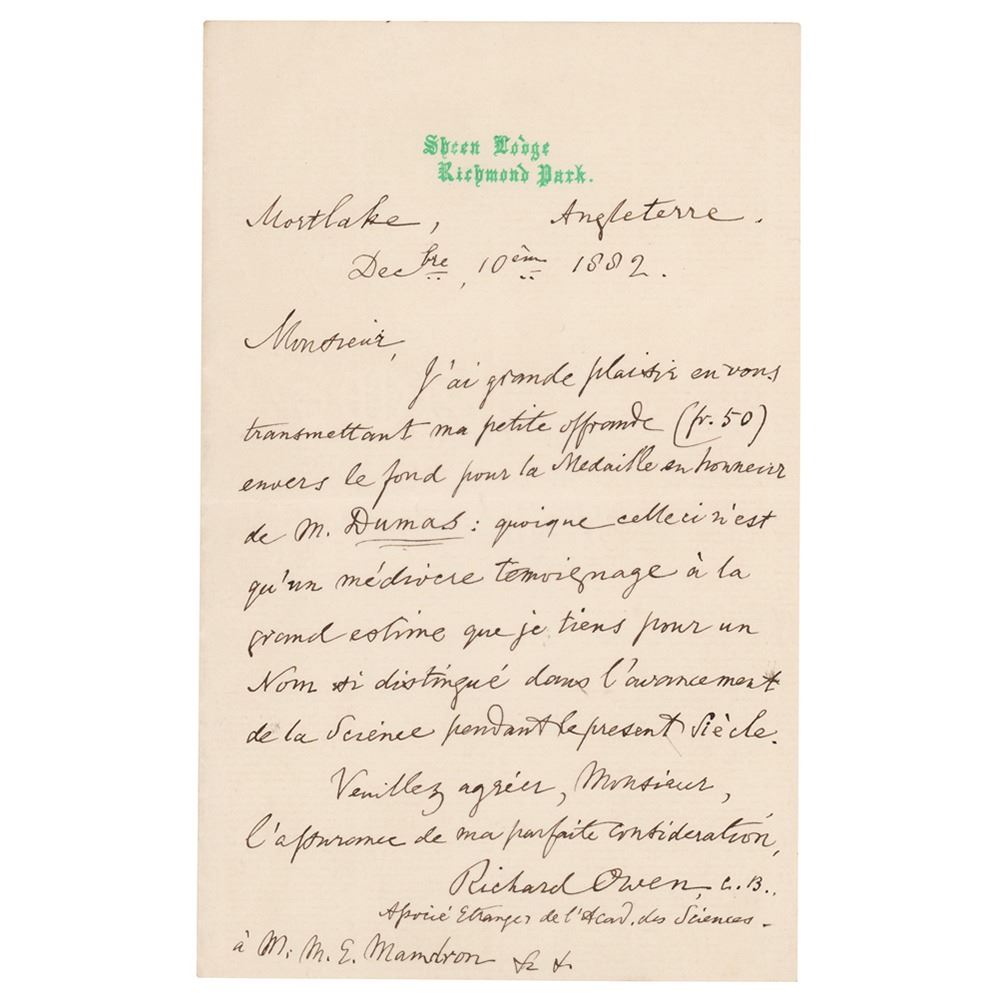 Sheen Lodge
Richmond Park.
Mortlake, Angleterre.
Decbre, 10ème 1882.
Monsieur,
J'ai grande plaisir en vous
transmettant ma petite offrande (fr. 50)
envers le fond pour la Medaille en honneur
de M. Dumas: quoique celleci n'est
qu'un médiocre temoignage à la
grand estime que je tiens pour un
Nom si distingué dans l'avancement
de la Science pendant le present Siècle.
Veuillez agréer, Monsieur,
l'assurance de ma parfaite consideration,
Richard Owen, C.B.,
Associé Etranger de l'Acad. des Sciences -
à M. M. E. Maindron &c &.